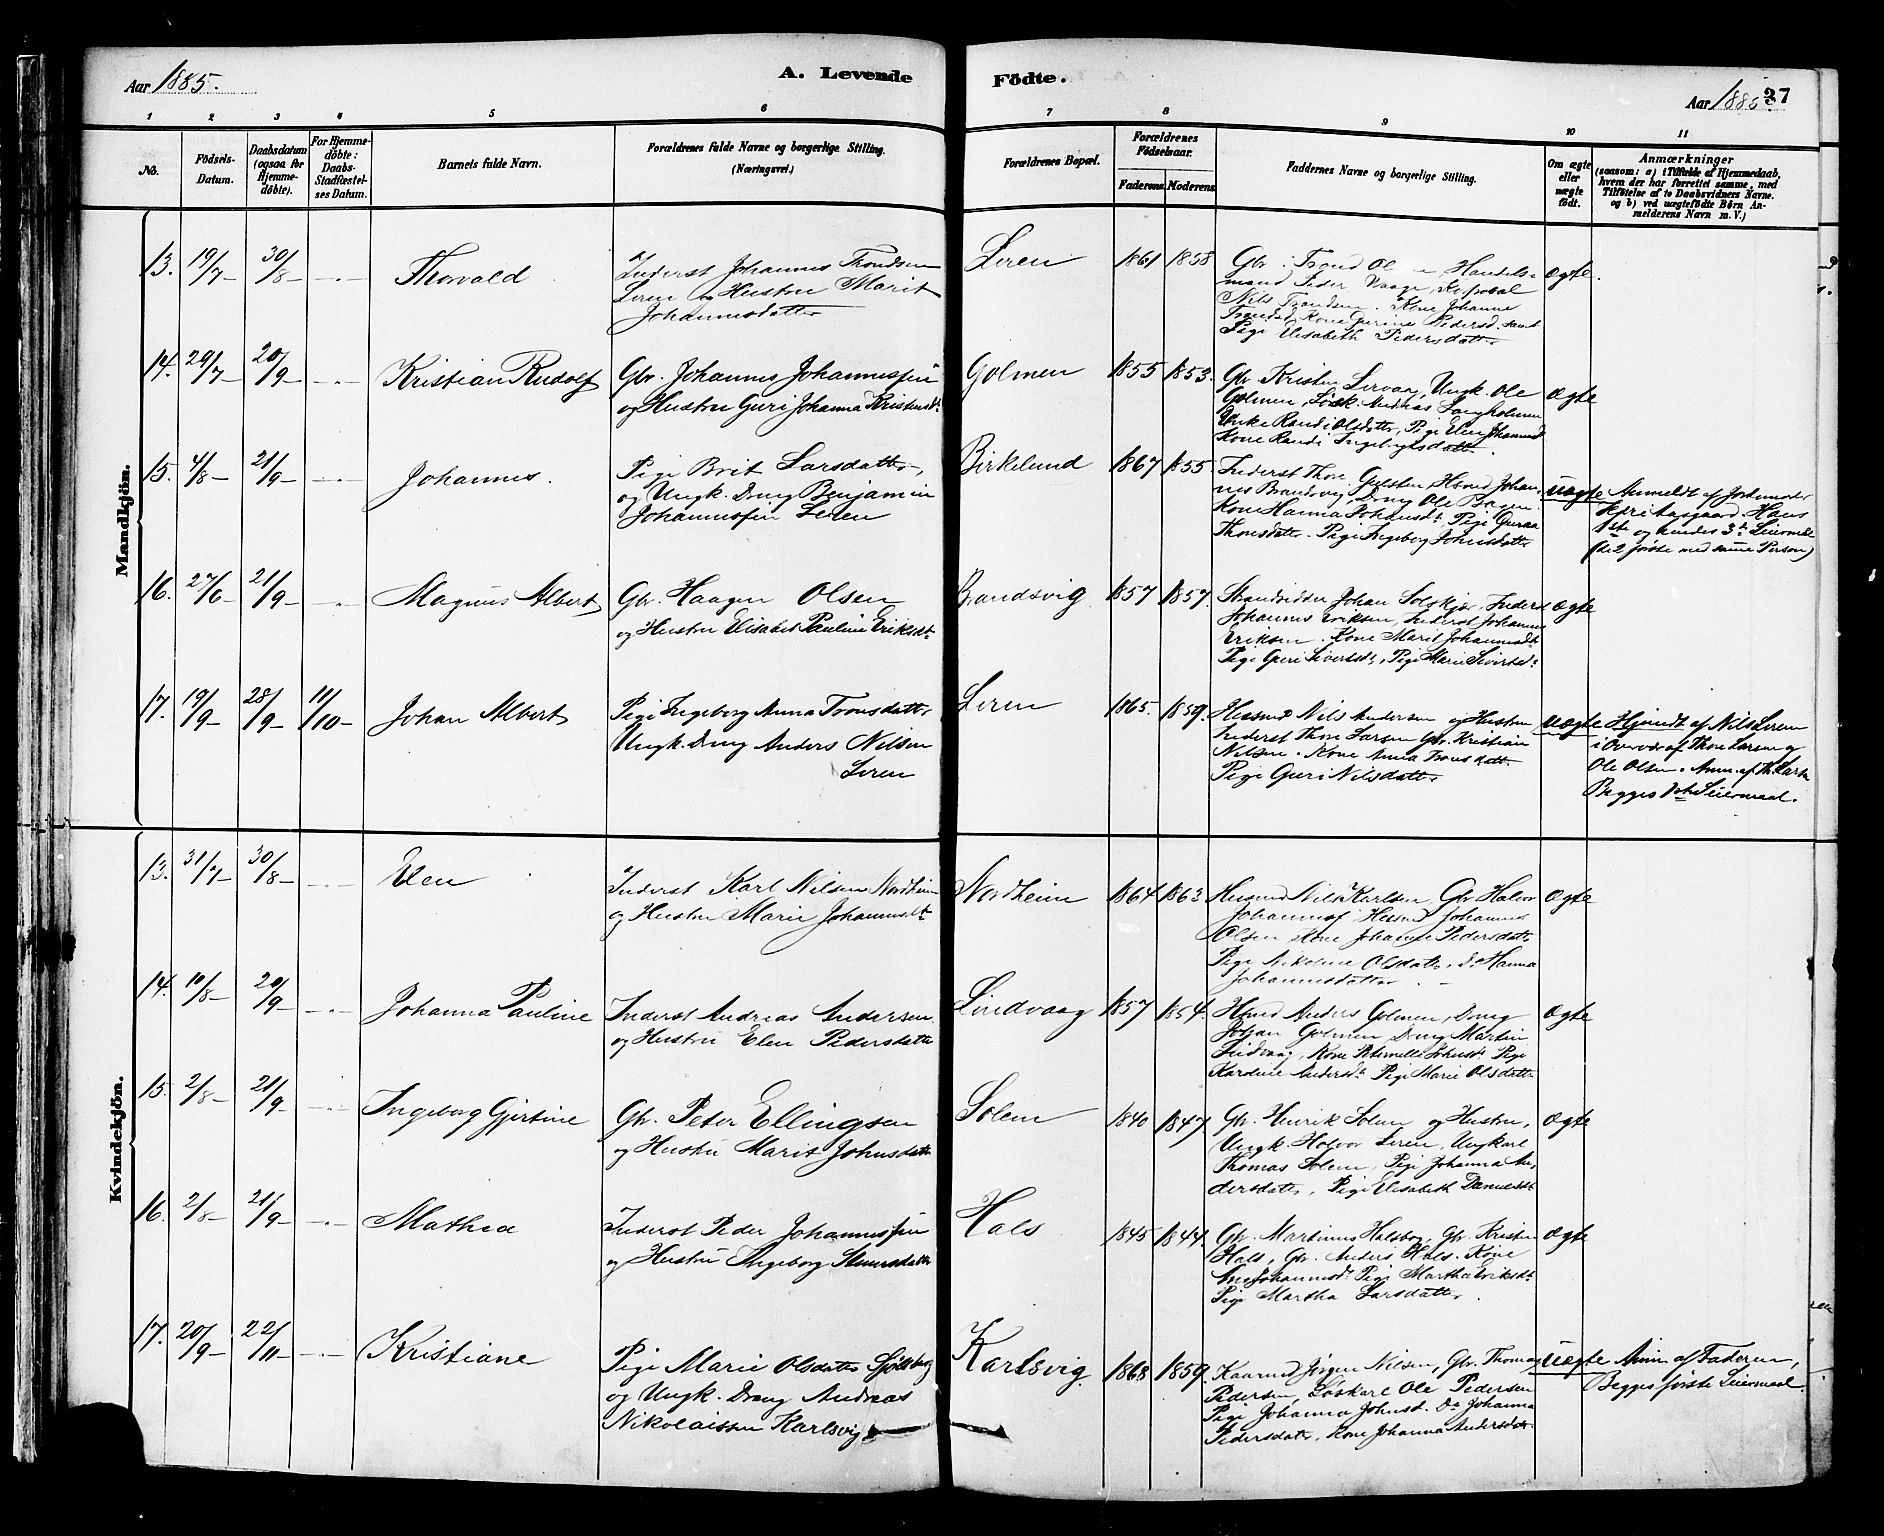 Aar 1885.
A. Levende
Födte.
Aar 1885.
37
1 2 3 4 5 6 7 8 9 10 11
No.
Födsels-
Datum.
Daabsdatum
(ogsaa for
Hjemme-
döbte).
For Hjemme-
döbte:
Daabs-
Stadfæstel-
ses Datum.
Barnets fulde Navn.
Forældrenes fulde Navne og borgerlige Stilling.
(Næringsvei.)
Forældrenes Bopæl.
Forældrenes
Födselsaar.
Faderens. Moderens.
Faddernes Navne og borgerlige Stilling.
Om ægte
eller
uægte
födt.
Anmærkninger
(saasom: a) i Tilfælde af Hjemmedaab,
hvem der har forrettet samme, med
Tilföielse af to Daabsvidners Navne.
og b) ved uægtefödte Börn An-
melderens Navn m. V.)
Mandkjön.
13. 19/7 30/8 Thorvald
Inderst Johannes Trondsen
Leren og Hustru Marit
Johannesdatter
Leren 1861 1858
Gbr. Trond Handels-
mand Peder Vaage, Korporal
Nils Trondsen. Kone Johanne
Kone Pedersd. samt
Pige Elisabeth Pedersdatter
ægte.
14. 29/7 20/9 Kristian Rudolf
Gbr. Johannes Johannessen
og Hustru Guri Johanna Kristensdt
Golmen 1855 1853.
Gbr. Kristen Lervaag, Ungk. Ole
Golmen, Andreas Langholmen
Enke Randi Olsdatter, Pige Elen Johannesd
Kone Randi Ingebrigtsdatter.
ægte
15. 4/8 21/9 Johannes.
Pige Brit Larsdatter,
og Ungk. Dreng Benjamin
Johannessen Leren
Birkelund 1867 1855
Inderst Thore Gulsten, Hsmd Johan-
nes Brandsvig, Dreng Ole
Kone Hanna Johansdt, Pige
Thoresdatter. Pige Ingeborg Johnsdatter
uægte
Anmeldt af Jordemoder
Hans
1ste og hendes 3die Leiermaal
(de 2 første med samme Person)
16. 27/6 21/9 Magnus Albert
Gbr. Haagen Olsen
og Hustru Elisabet Pauline Eriksdt
Brandsvig 1857 1857.
Strandsidder Johan Solskjær, Inderst
Johannes Eriksen, Inderst Johannes
Eriksen. Kone Marit Johannesdt
Pige Guri Sivertsdt, Pige Marie Sivertsdt
ægte
17. 19/9 28/9 11/10 Johan Albert
Pige Ingeborg Anna Tronsdatter
Ungk. Dreng Anders Nilsen
Leren
Leren 1865. 1859.
Husmd Nils Andersen og Hustru
Inderst Thore Larsen Gbr. Kristian
Nilsen. Kone Anna Tronsdatt.
Pige Guri Nilsdatter
uægte
Hjemdt af Nils Leren
i Overvær af Thore Larsen og
Ole Olsen. Anm. af Th. Larsen
Begges 1ste Leiermaal.
Kvindekjön.
13. 31/7 30/8 Elen
Inderst Karl Nilsen Nordheim
og Hustru Marie Johannesdt
Nordheim 1864 1863
Husmd Nils Karlsen, Gbr Halvor
Johannes Husmd Johannes
Olsen Kone Johanne Pedersdatter
Pige Nikoline Olsdatter, do Hanna
Johannesdatter.
ægte
14. 10/8 20/9 Johanna Pauline
Inderst Andreas Andersen
og Hustru Elen Pedersdatter
Lindvaag 1857 1854.
Hsmd Anders Golmen, Dreng
Johan Golmen Dreng Martin
Lindvaag, Kone Peternelle Johnsdt Pige
Karoline Andersdt Pige Marie Olsdatter
ægte
15. 2/8 21/9 Ingeborg Gjertine
Gbr. Peter Ellingsen
og Hustru Marit Johnsdatter
Solem 1840 1847
Gbr. Henrik Solem og Hustru,
Ungk. Halvor Leren, Ungkarl
Thomas Solem, Pige Johanna An-
dersdatter, Pige Elisabeth Danielsdt
ægte
16. 2/8 21/9 Mathea
Inderst Peder Johannessen
og Hustru Ingeborg
Hals 1845 1844.
Gbr. Martinus Halsbog, Gbr. Kristen
Hals, Gbr. Anders Hals. Kone
Johannesdt Pige Martha Eriksdt
Pige Martha Larsdatter.
ægte
17. 20/9 22/11 Kristiane
Pige Marie Olsdatter
og Ungk. Dreng Andreas
Nikolaissen Karlsvig
Karlsvig 1868 1859.
Kaarmd Jørgen Nilsen, Gbr. Thomas
Pedersen, Løskarl Ole Pedersen
Pige Johanna Johnsd. Do Johanna
Pedersdatter, Kone Johanna Andersdatter
uægte
Anm. af Faderen,
Begges første Leiermaal.